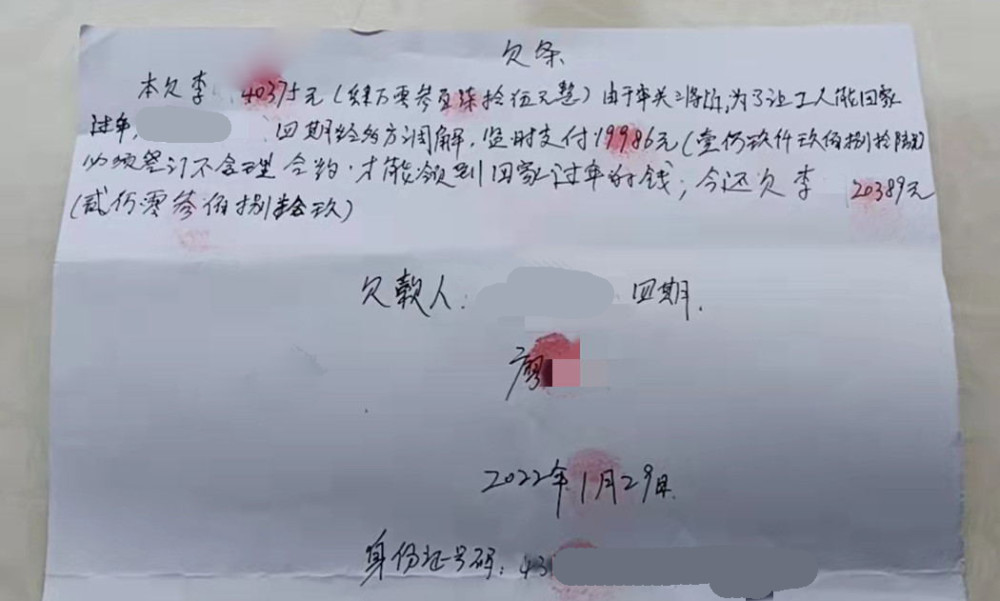 欠条
本欠李 40375元(肆万零参百柒拾伍元整)由于年关将临,为了让工人能回家
过年, 四期经多方调解,临时支付19986元(壹仟玖仟玖佰捌拾陆)
必须签订不合理合约.才能领到回家过年的钱;今还欠李 20389元
(贰仟零参佰捌拾玖)
欠款人: 四期.
廖
2022年1月29日.
身份证号码:43